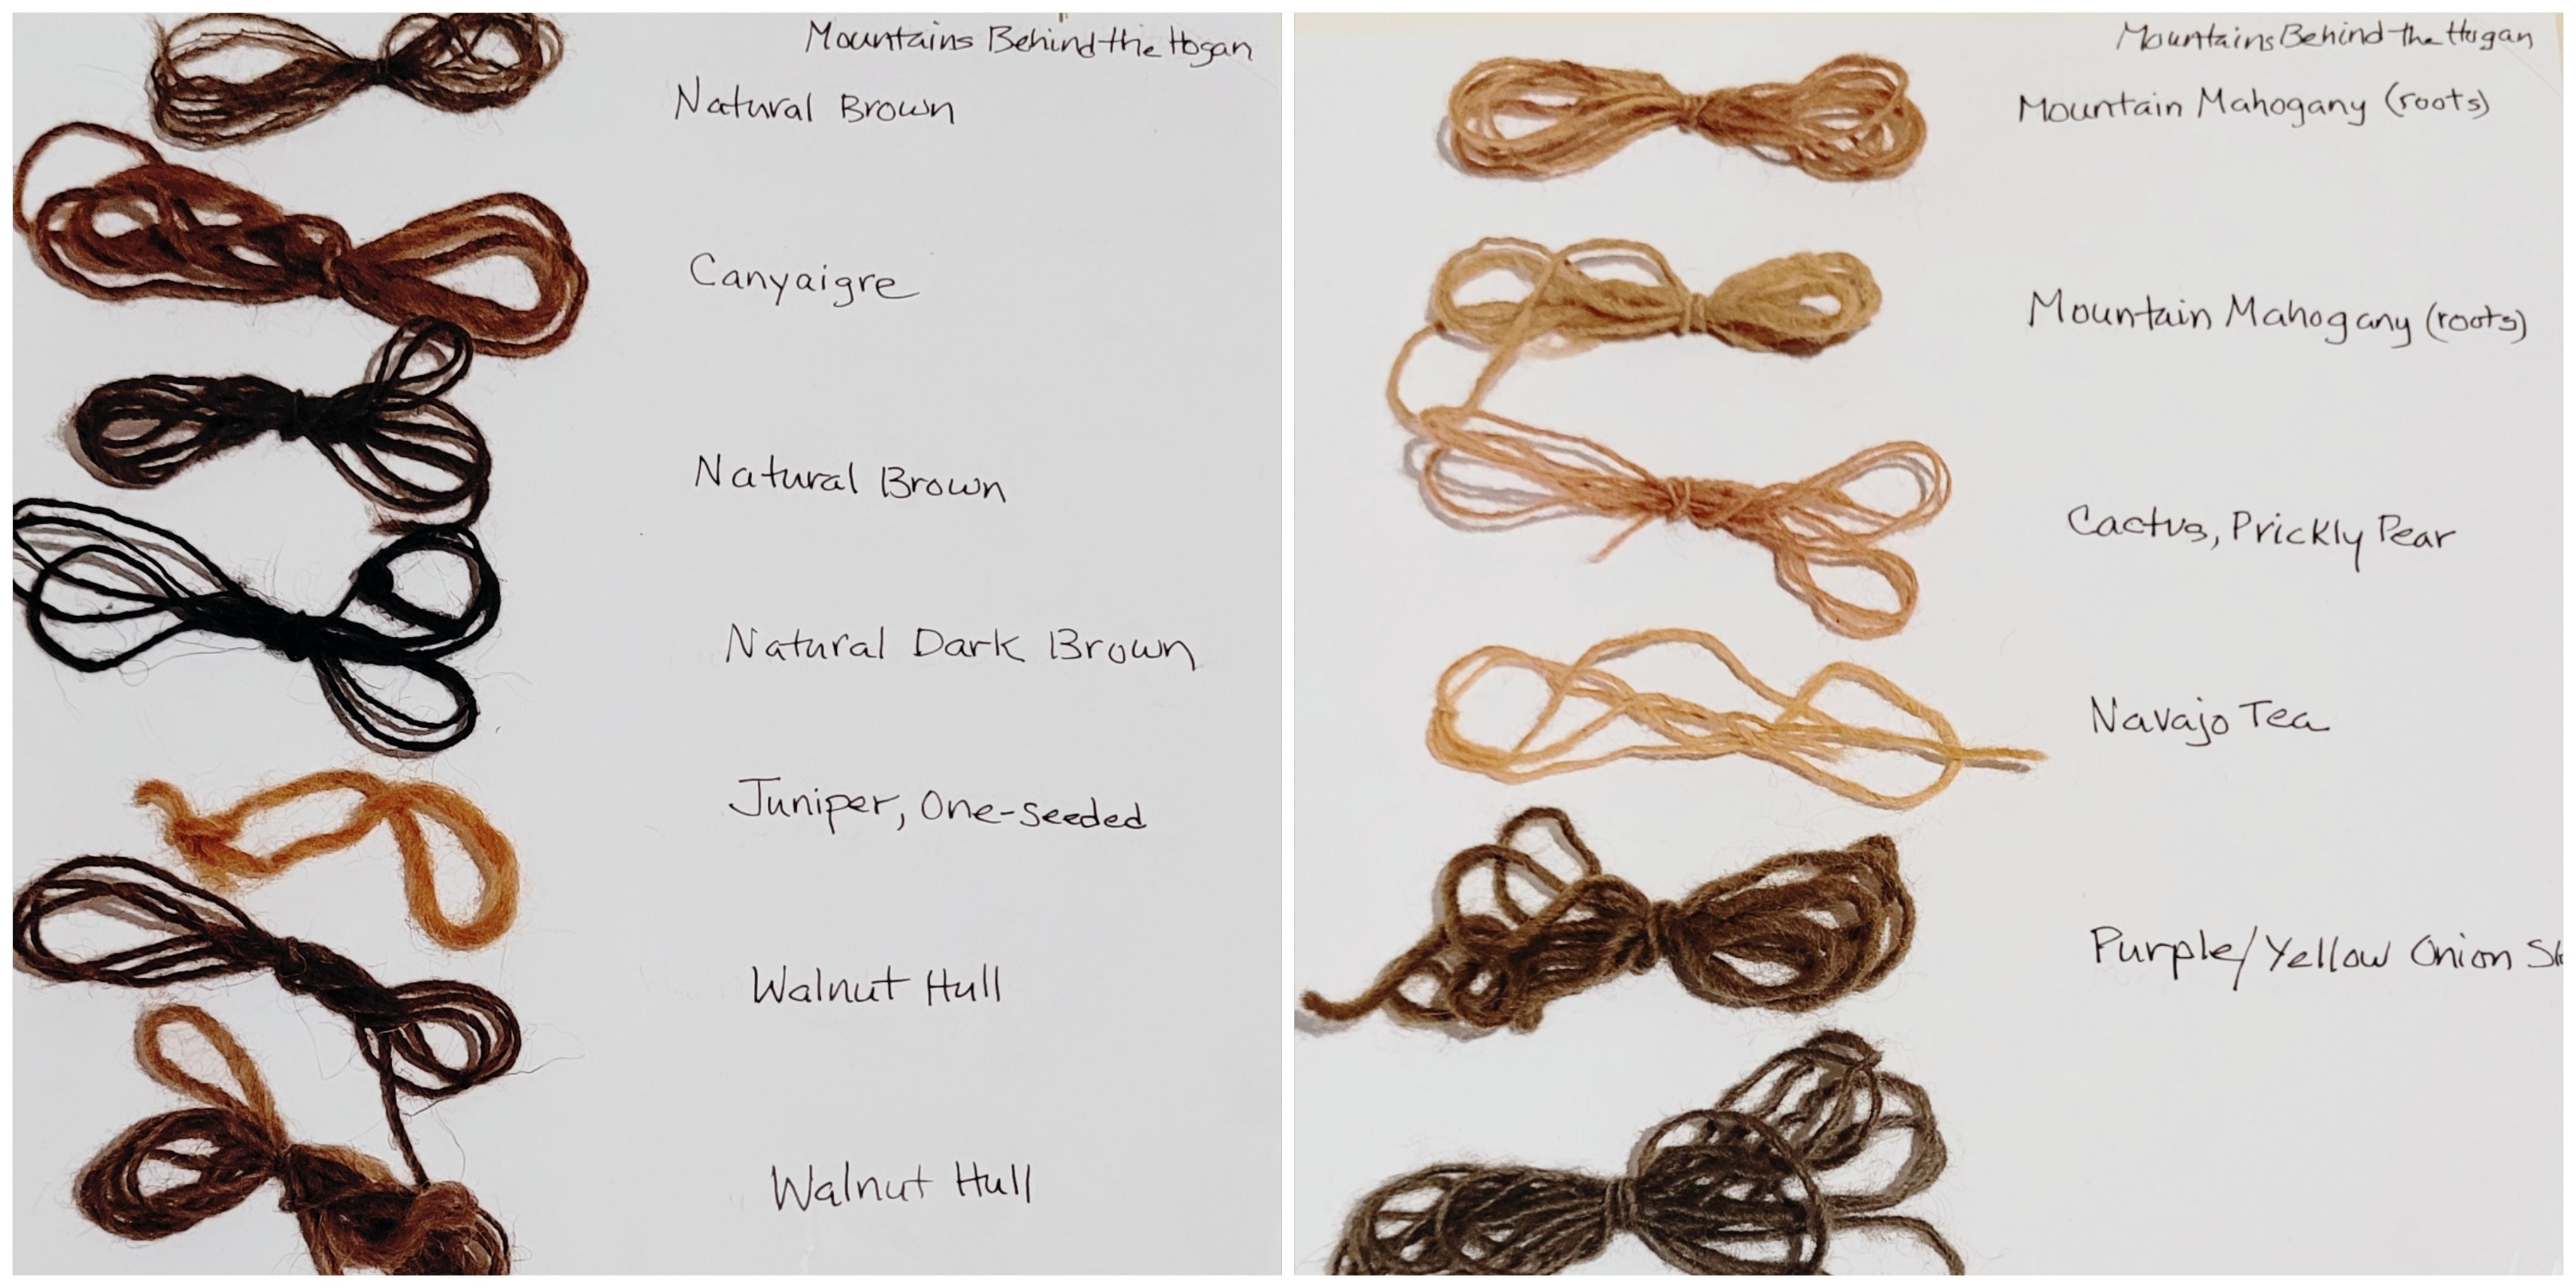 Mountains Behind the Hogan
Natural Brown
Canyaigre
Natural Brown
Natural Dark Brown
Juniper, One-seeded
Walnut Hull
Walnut Hull
Mountains Behind the Hogan
Mountain Mahogany (roots)
Mountain Mahogany (roots)
Cactus, Prickly Pear
Navajo Tea
Purple/Yellow Onion